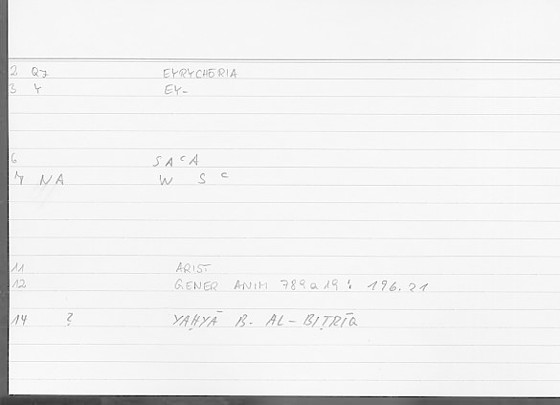 2 Q7 EYRYCHERIA
3 Y EY-
6 SAᶜA
7 NA W S ᶜ
11 ARIST
12 GENER ANIM 789a19: 196.21
14 2 YAḤYĀ B. AL-BIṬRĪQ